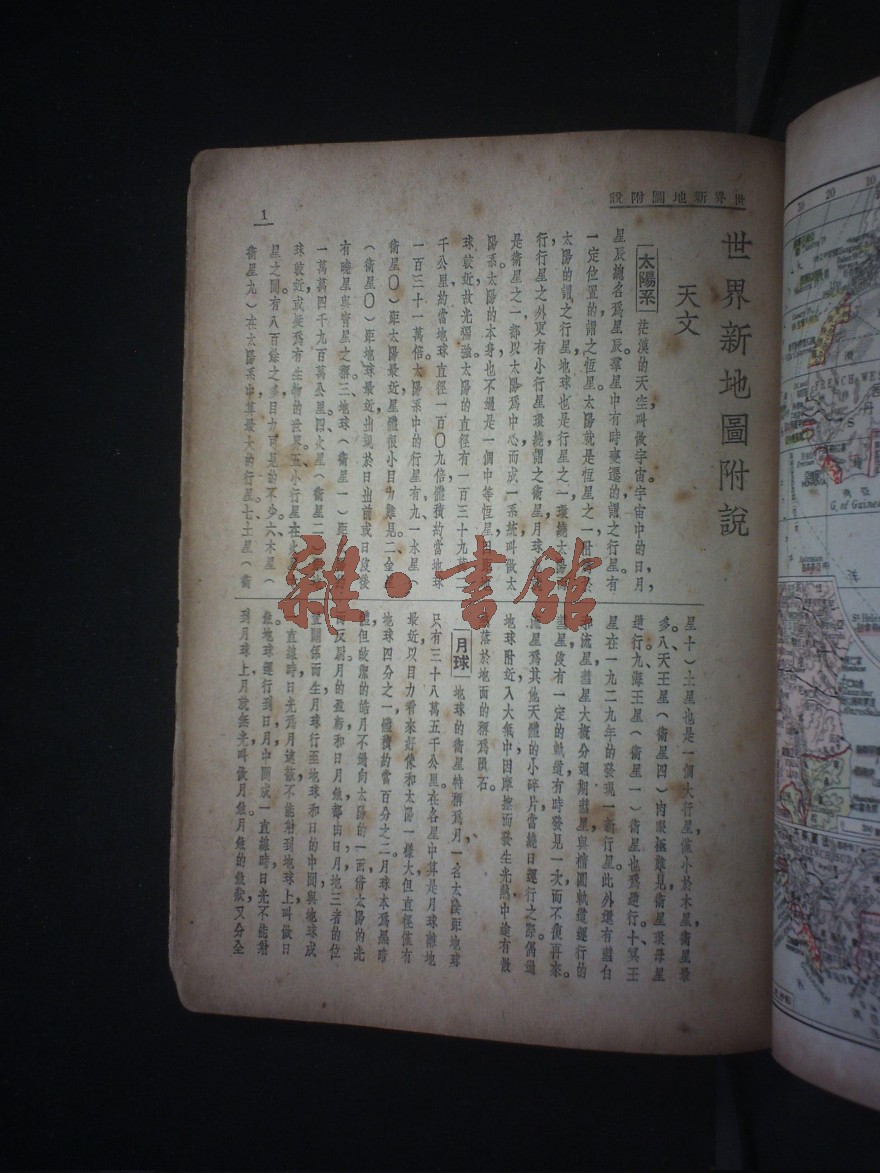 世界新地圖附說
世界新地圖附說
天文
太陽系 茫漠的天空，叫做宇宙。宇宙中的日、月、
星辰總名爲星辰羣星中有時變遷的，謂之行星；有
一定位置的，謂之恆星。太陽就是恆星之一，附屬於
太陽的，謂之行星。地球也是行星之一，環繞太陽而
行。行星之外，更有小行星環繞，謂之衞星，月球就
是衞星之一，都以太陽爲中心而成一系統，叫做太
陽系。太陽的本身，也不過是一個中等恆星，因距地
球較近，故光獨強。太陽的直徑有一百三十九萬
千公里，約當地球直徑一百〇九倍，體積約當地球
一百三十一萬倍。太陽系中的行星有九：一水星（
衞星〇）距太陽最近，星體很小，目力難見。二金星
（衞星〇）距地球最近，出現於日出前或日沒後，
有曉星與宵星之稱。三地球（衞星一）距
一萬萬四千九百萬公里。四火星（衞星二）
球較近，或疑爲有生物的世界。五小行星，在火
星之間，有八百餘之多，目力可見的不少。六木星（
衞星九）在太陽系中算最大的行星。七土星（衞
星十）土星也是一個大行星，僅小於木星，衞星最
多。八天王星（衞星四）肉眼極難見，衞星環母星
逆行。九海王星（衞星一）衞星也爲逆行。十冥王
星，在一九二九年的發現一新行星。此外還有彗星
和流星。彗星大概分週期彗星與橢圓軌道運行的
彗星，後有一定的軌道，有時發見一次而不復再來。
流星爲其他天體的小碎片，當繞日運行之際，偶過
地球附近，入大氣中，因摩擦而發生光熱，中途有散
落於地面的，稱爲隕石。
月球 地球的衞星，特稱爲月，一名太陰，距地球
只有三十八萬五千公里，在各星中算是月球離地
最近，以目力看來，好像和太陽一樣大，但直徑僅有
地球四分之一，體積約當百分之二。月球本爲黑暗
體，但皎潔的皓月，不過向太陽的一面，借太陽的光
而反射。月的盈虧和日月蝕，都由日月地三者的位
置關係而生。月球行至地球和日的中間，與地球成
直線時，日光爲月遮蔽，不能射到地球上，叫做日
蝕。地球運行到日月中間，成一直線時，日光不能射
到月球上，月就無光，叫做月蝕。月蝕的蝕數又分全
1
FRENCH WES
G. of Guinea
St Hele
30
20
10